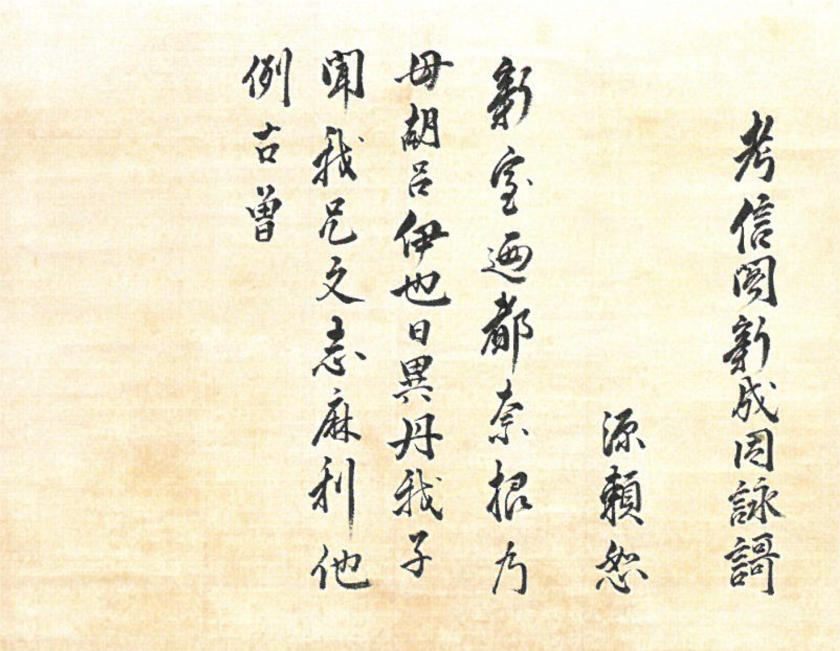 考信閣新成因詠謌
源頼恕
新室迺都奈根乃
母胡呂伊也日異丹我子
聞我兄文志麻利他
例古曽